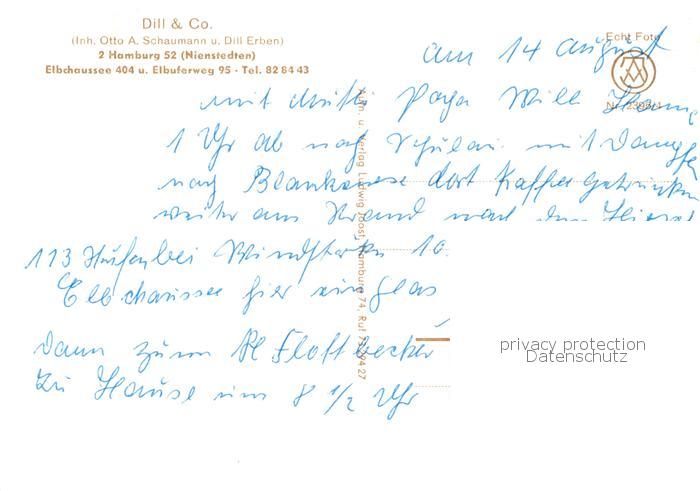 Dill & Co.
(Inh. Otto A. Schaumann u. Dill Erben)
2 Hamburg 52 (Nienstedten)
Elbchaussee 404 u. Elbuferweg 95 · Tel. 82 84 43
Echt Foto
am 14 august
mit Papa Will
1 Uhr ab nach Schulau mit Dampfer
nach Blankenese dort Kaffee getrunken
weiter am Strand
113 Stufen bei Windstärke 10
Elbchaussee hier ein glas
dann zum Kl Flottbecker
zu Hause um 8 1/2 Uhr
u. Verlag Ludwig Joost, Hamburg 74, Ruf
privacy protection
Datenschutz